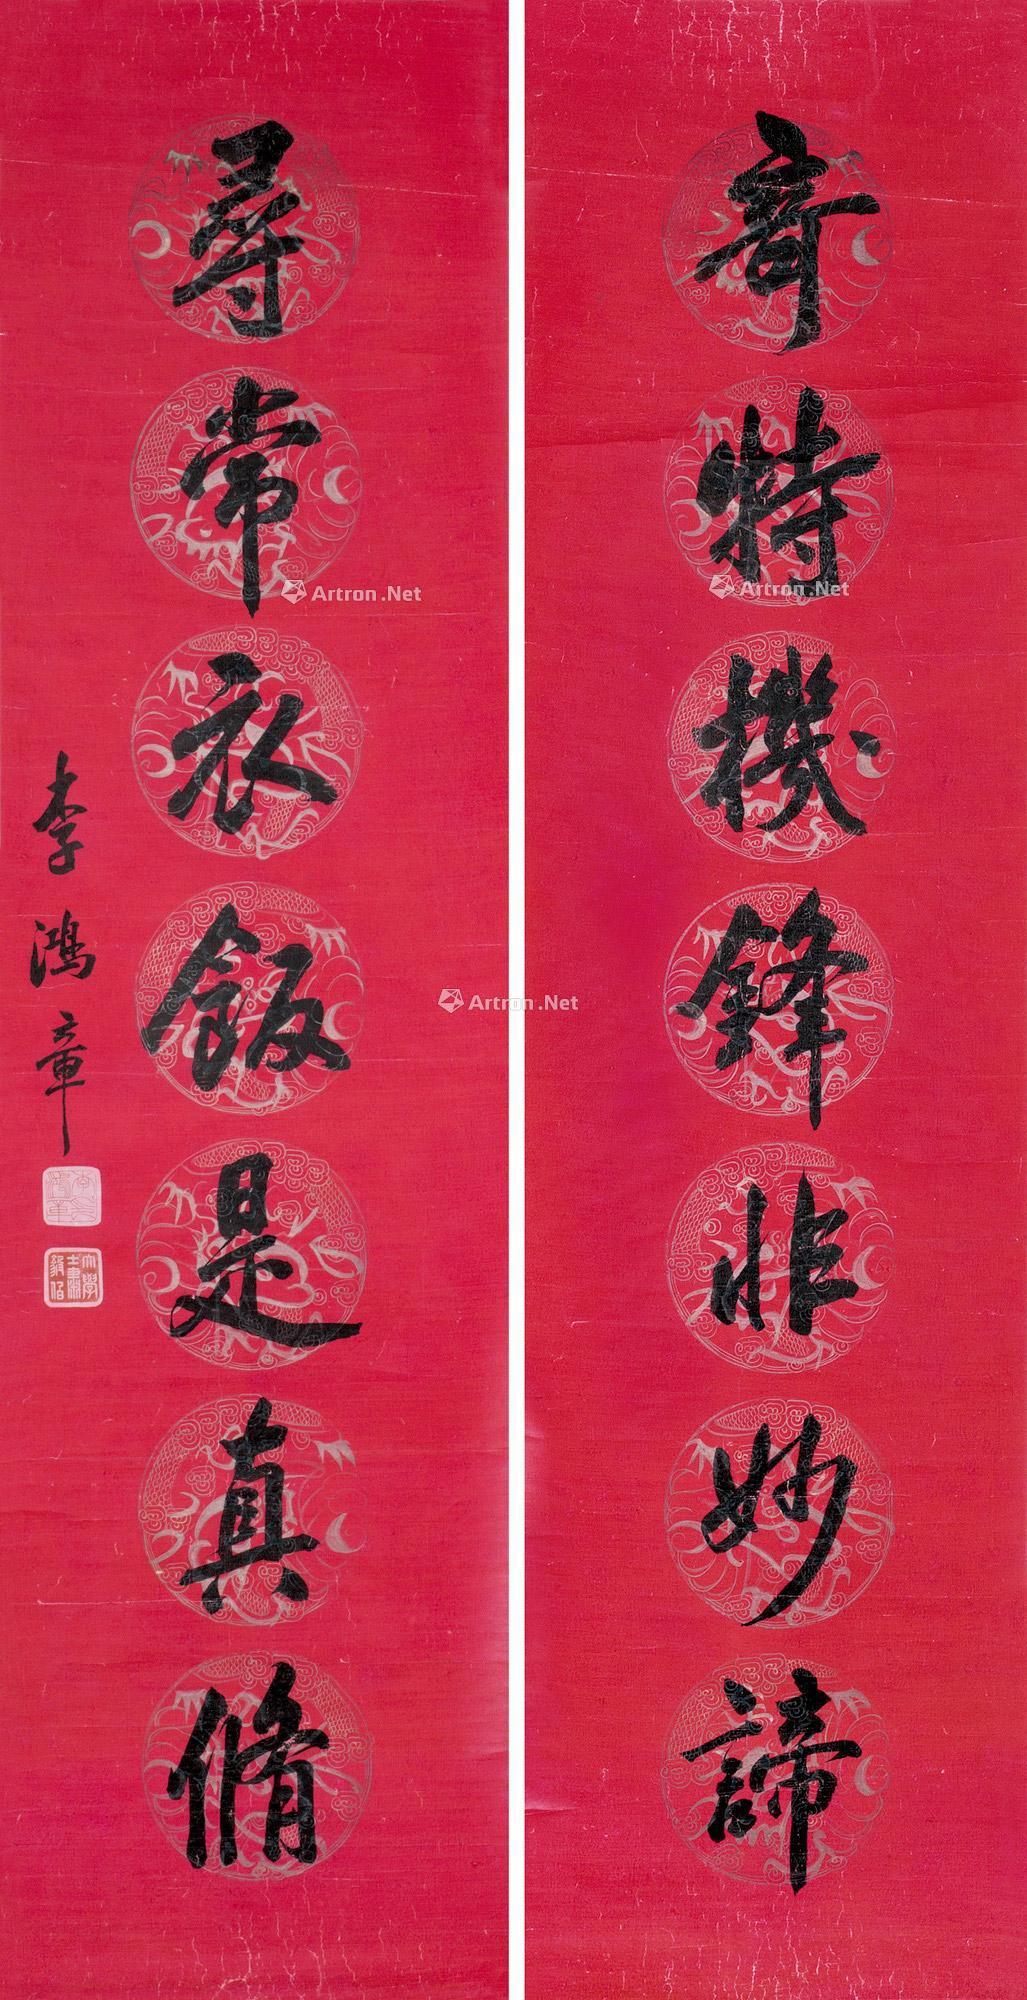 奇特機鋒非妙諦
尋常衣飯是真脩
李鴻章
大學士肅毅伯
Artron.Net
Artron.Net
Artron.Net